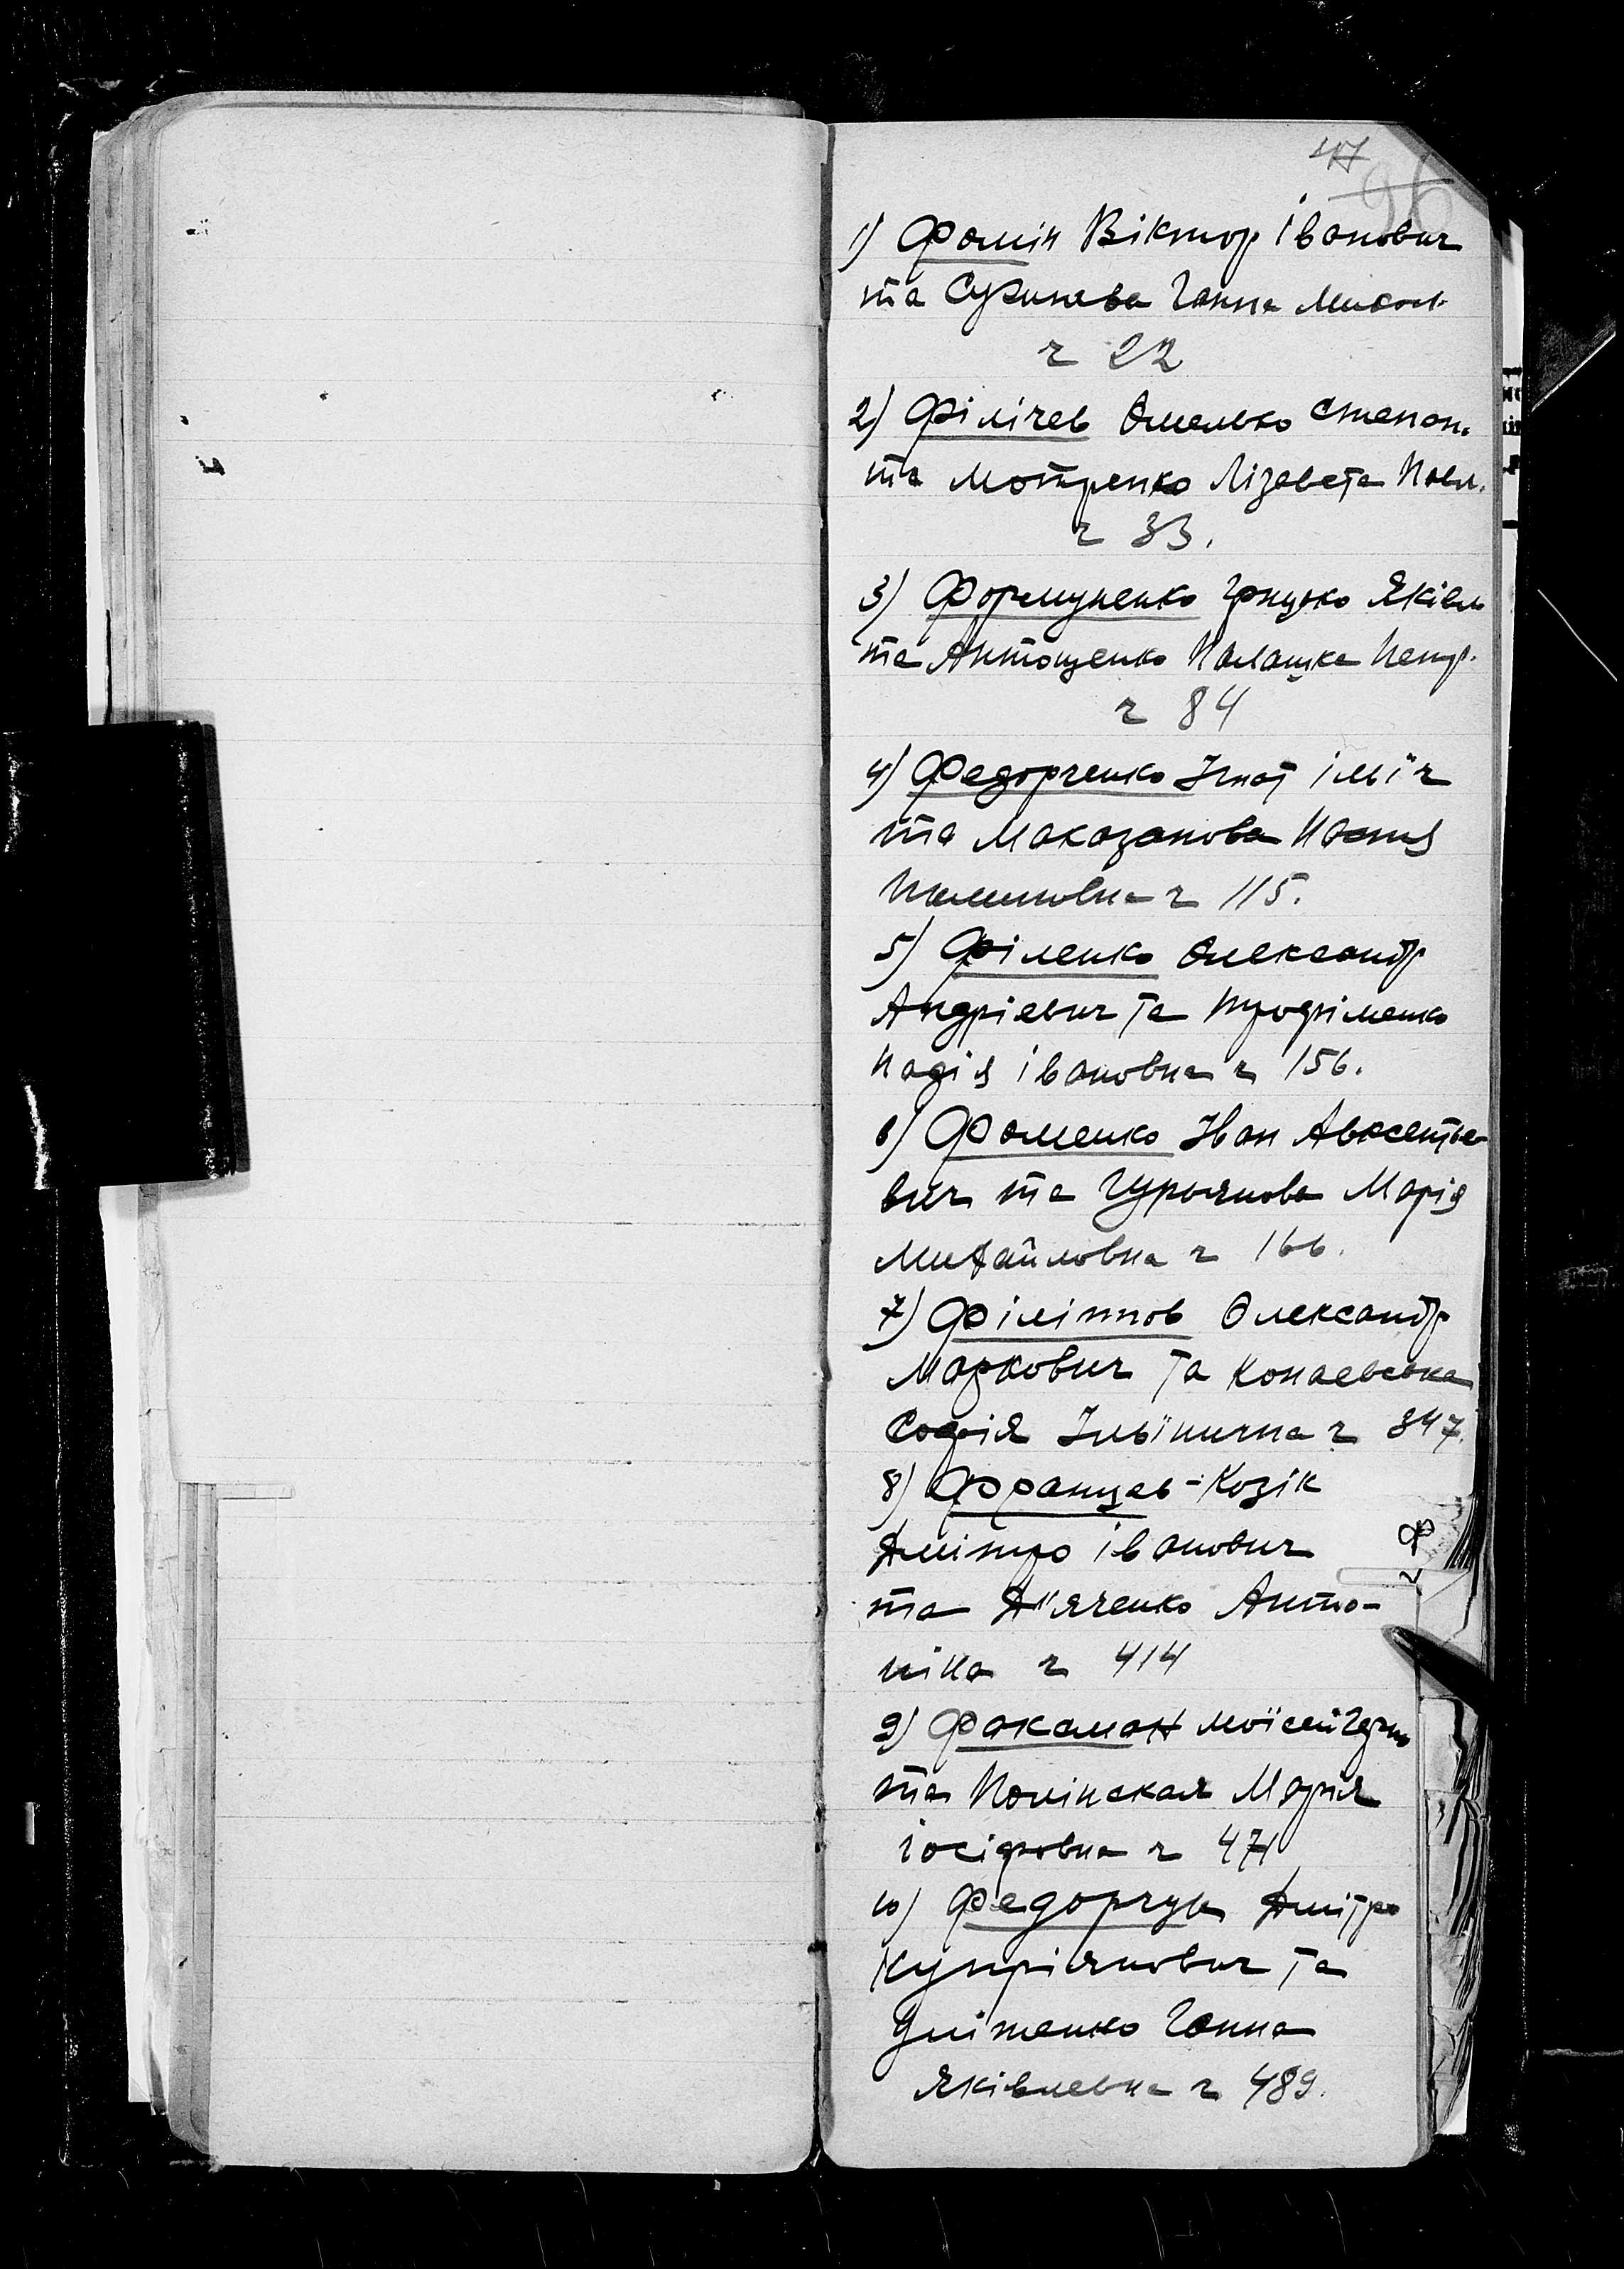 47
96
1) Фомін Віктор Іванович
та Ганна Микол.
ч 22
2) Філічев Омелько Степан.
та Мотренко Лізавета Павл.
ч 33.
3) Фортуненко Грицько Яківл
та Антощенко Палашка Петр.
ч 84
4) Федорченко Ігнат Ільїч
та Маказанова Настя
ч 115.
5) Філенко Олександр
Андрієвич та Трофіменко
Надія Івановна ч 156.
6) Фоменко Іван Авксентье-
вич та Гурьянова Марія
Михайловна ч 166.
7) Філіппов Олександр
Маркович та Конаевська
Софія Ільїнична ч 347.
8) Францев-Козік
Дмітро Іванович
та Д"яченко Анто-
ніна ч 414
9) Факсман Моїсей Герш
та Полінская Марія
Іосіфовна ч 471
10) Федорчук Дмітро
Купріянович та
Ганна
Яківлевна ч 489.
Ф